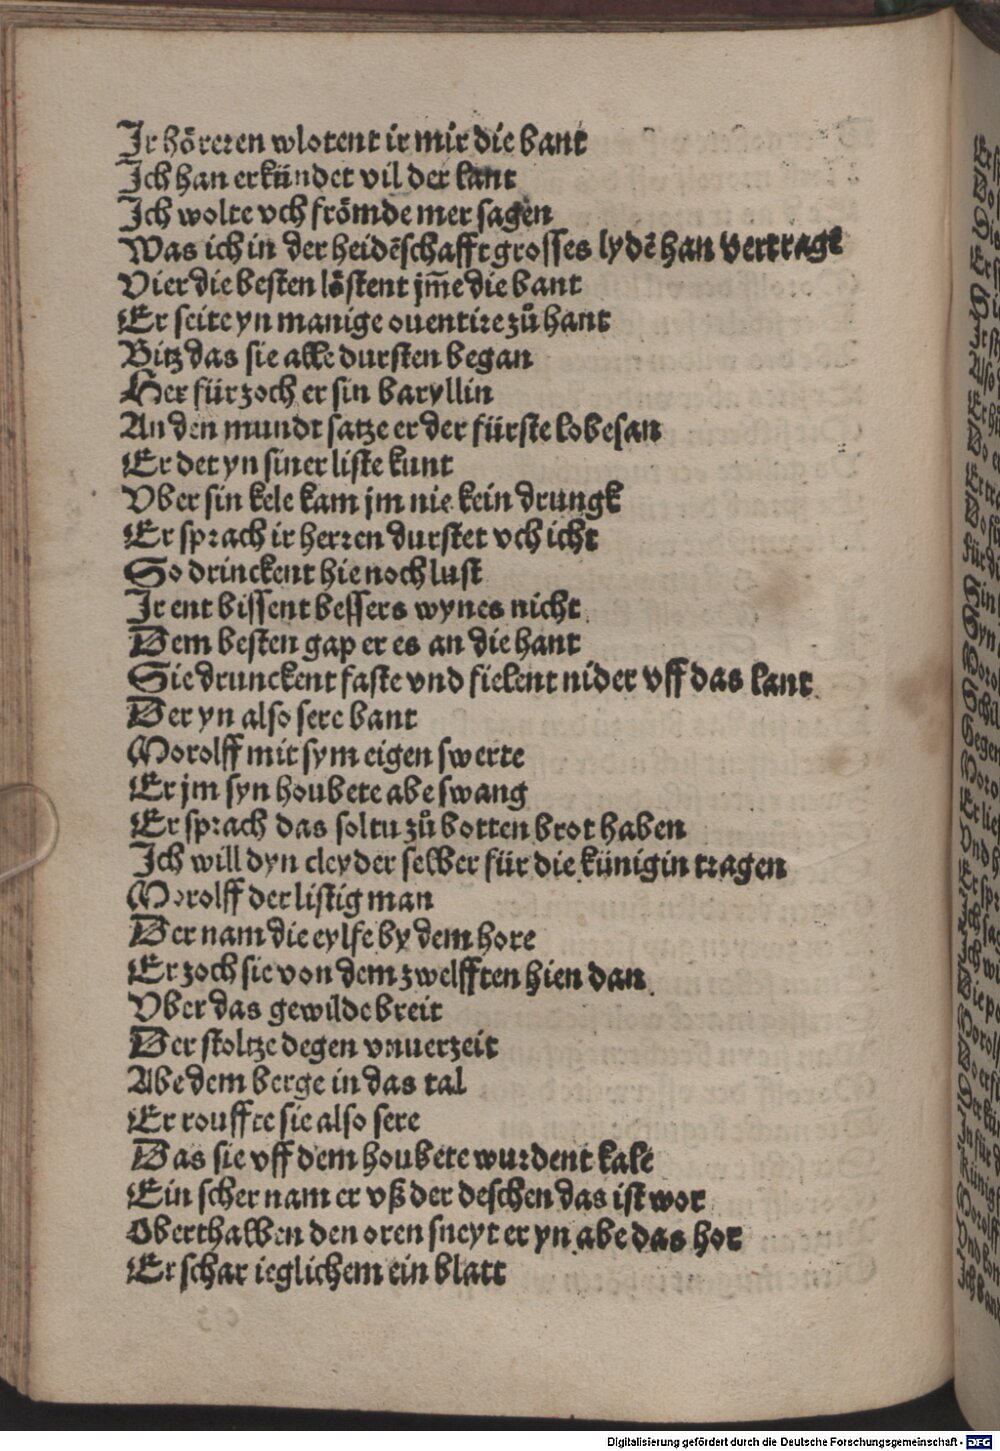 Ir höreren wlotent ir mir die bant
Ich han erkündet vil der lant
Ich wolte vch frömde mer sagen
Was ich in der heidēschafft grosses lydē han vertragē
Vier die besten löstent jm̄e die bant
Er seite yn manige ouentire zů hant
Bitz das sie alle dursten began
Her für zoch er sin baryllin
An den mundt satze er der fürste lobesan
Er det yn siner liste kunt
Vber sin kele kam jm nie kein drungk
Er sprach ir herren durstet vch icht
So drinckent hie noch lust
Ir ent bissent bessers wynes nicht
Dem besten gap er es an die hant
Sie drunckent faste vnd fielent nider vff das lant
Der yn also sere bant
Morolff mit sym eigen swerte
Er jm syn houbete abe swang
Er sprach das soltu zů botten brot haben
Ich will dyn cleyder selber für die künigin tragen
Morolff der listig man
Der nam die eylfe by dem hore
Er zoch sie von dem zwelfften hien dan
Vber das gewilde breit
Der stoltze degen vnuerzeit
Abe dem berge in das tal
Er rouffte sie also sere
Das sie vff dem houbete wurdent kale
Ein scher nam er vß der deschen das ist wor
Oberthalben den oren sneyt er yn abe das hor
Er schar ieglichem ein blatt
Digitalisierung gefördert durch die Deutsche Forschungsgemeinschaft - DFG